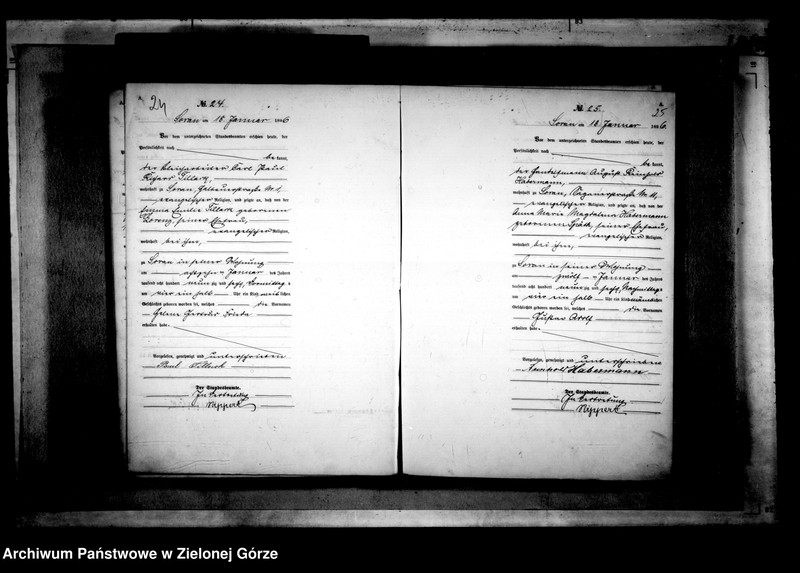 24
№ 24.
Soran am 18. Januar 1896
Vor dem unterzeichneten Standesbeamten erschien heute, der
Persönlichkeit nach
be kannt,
der Carl Paul
Richard Tillack,
wohnhaft zu Soran, № 1,
evangelischer Religion, und zeigte an, daß von der
Emma Emilie Tillack geborenen
Lorenz, seiner Ehefrau,
evangelischer Religion,
wohnhaft bei ihm,
zu Soran in seiner Wohnung
am achtzehnten Januar des Jahres
tausend acht hundert neunzig und sechs, Vormittags
um vier ein halb Uhr ein Kind weiblichen
Geschlechts geboren worden sei, welches die Vornamen
Helene Frieda
erhalten habe.
Vorgelesen, genehmigt und unterschrieben
Paul Tillack
Der Standesbeamte.
In Vertretung
Nippert
25
№ 25.
Soran am 18. Januar 1896.
Vor dem unterzeichneten Standesbeamten erschien heute, der
Persönlichkeit nach
be kannt,
der Handelsmann August Reinhold
Habermann,
wohnhaft zu Soran, Saganerstraße № 11,
evangelischer Religion, und zeigte an, daß von der
Anna Maria Magdalena Habermann
geborenen Späth, seiner Ehefrau,
evangelischer Religion,
wohnhaft bei ihm,
zu Soran in seiner Wohnung
am zwölften Januar des Jahres
tausend acht hundert neunzig und sechs, Nachmittags
um vier ein halb Uhr ein Kind männlichen
Geschlechts geboren worden sei, welches die Vornamen
Gustav Adolf
erhalten habe.
Vorgelesen, genehmigt und unterschrieben
Reinhold Habermann
Der Standesbeamte.
In Vertretung
Nippert
Archiwum Państwowe w Zielonej Górze